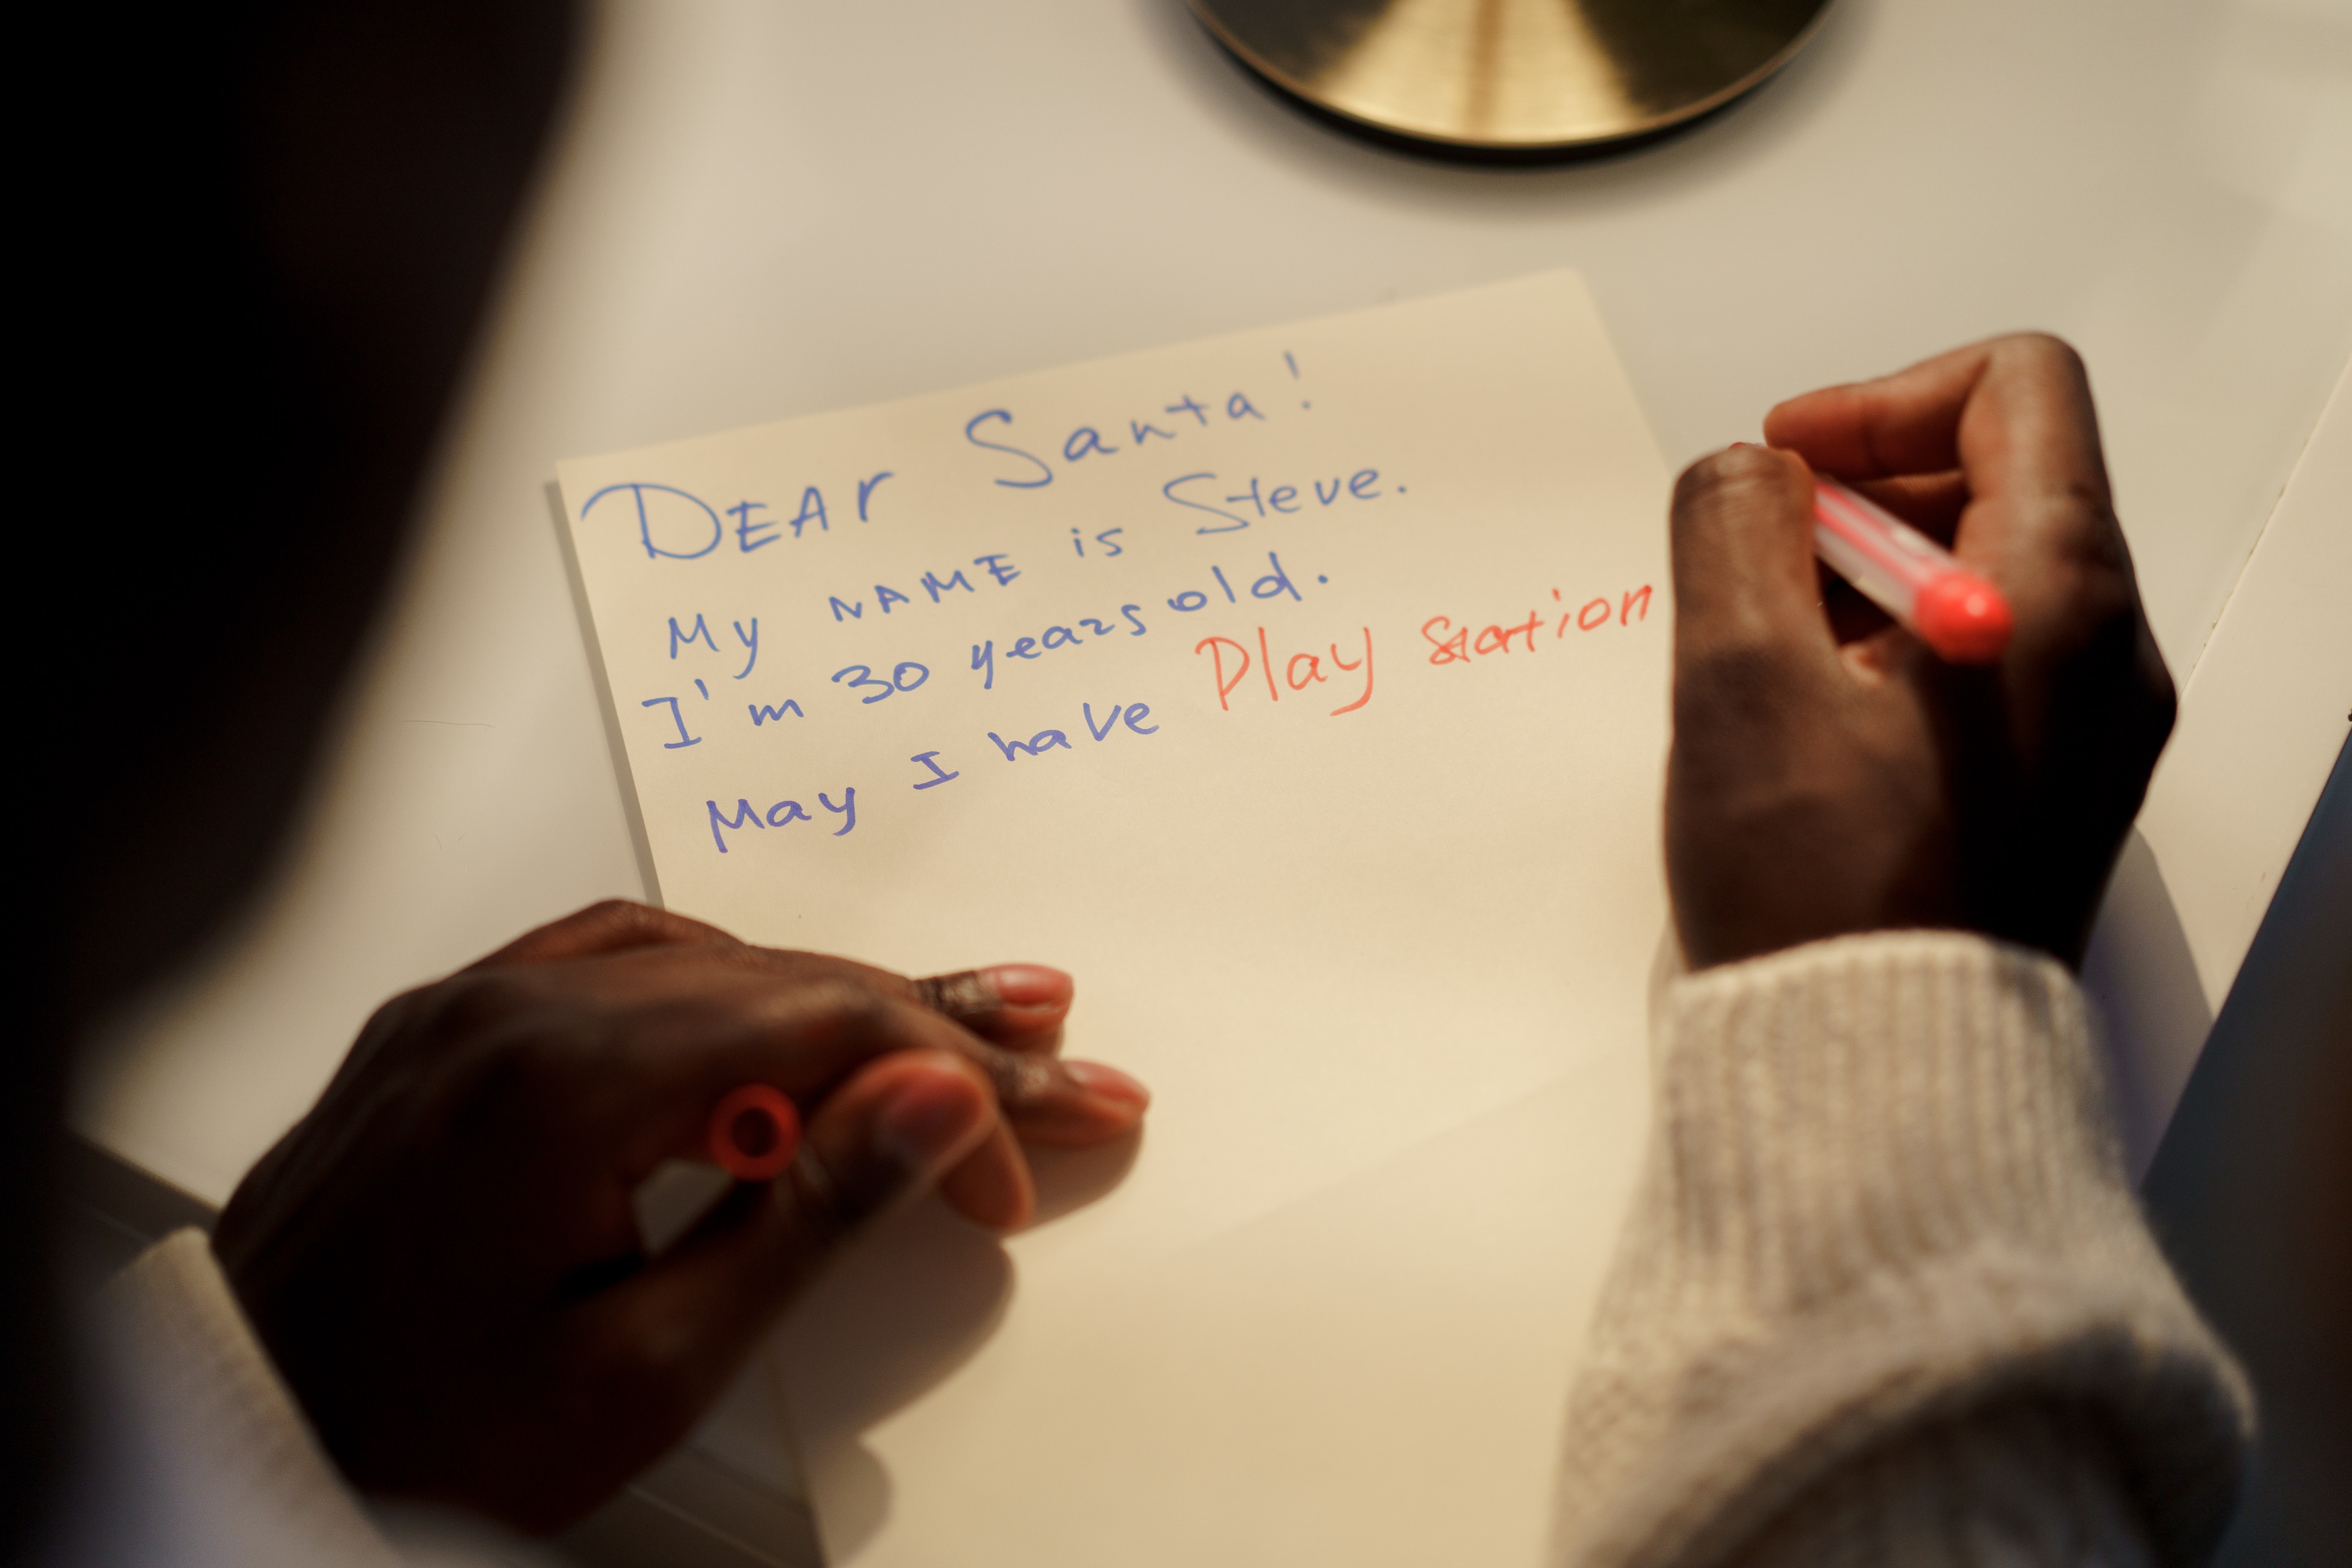 DEAr Santa!
My NAME is Steve.
I'm 30 years old.
May I have Play Station